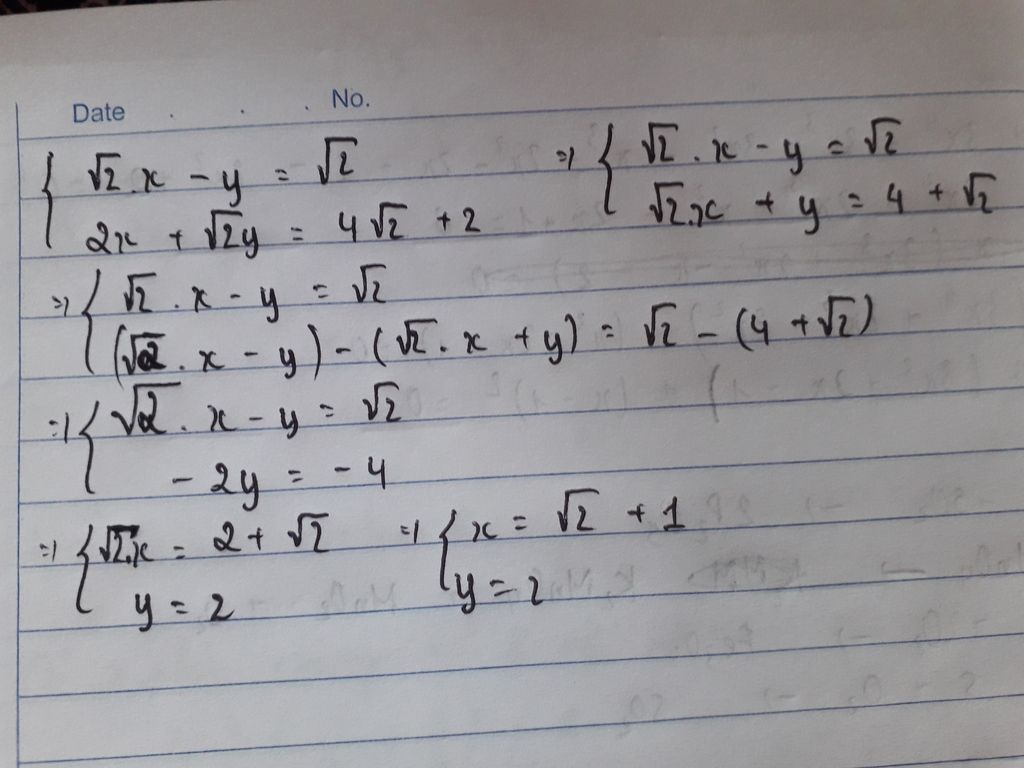 Date . . . No.
{ √2.x - y = √2 => { √2.x - y = √2
2x + √2y = 4√2 + 2 √2.x + y = 4 + √2
=> { √2.x - y = √2
(√2.x - y) - (√2.x + y) = √2 - (4 + √2)
=> { √2.x - y = √2
- 2y = - 4
=> { √2.x = 2 + √2 => { x = √2 + 1
y = 2 y = 2